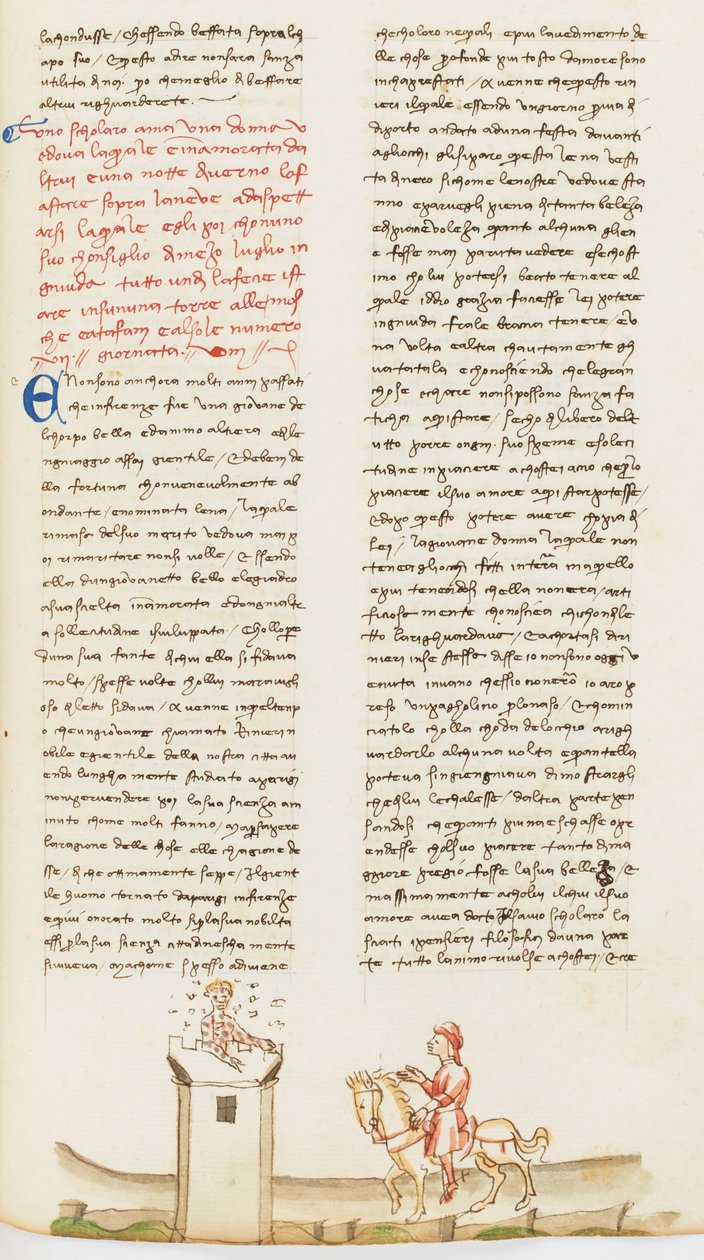 lachondusse / Chessendo beffata sopra lch
apo suo / Questo adire nonsara sanza
utilita dinoi. po chemeglio dibeffare
altrui righuarderete.
Uno scholaro ama una donna v
edova laquale einamorata da
ltrui euna notte diverno lof
a stare sopra laneve adaspett
arsi laquale egli poi chonuno
suo chonsiglio dimezo luglio in
gniuda tutto undi lafecie ist
are insununa torre allemos
che eatafani ealsole numero
giornata
ENonsono anchora molti anni passati
cheinfirenze fue una giovane de
lchorpo bella edanimo altiera edile
ngniaggio assai gientile / Edebeni de
lla fortuna chonvenevolmente ab
ondante / enominata lena / laquale
rimasa delsuo marito vedova mai p
oi rimaritare nonsi volle / Essendo
ella dungiovanetto bello elegiadro
asuascielta inamorata edongnialtr
a sollecitudine isviluppata / Chollope
duna sua fante dichui ella si fidava
molto / spesse volte chollui maravigli
oso diletto sidava / Avenne inqueltenp
o cheungiovane chiamato Rinieri n
obile egientile della nostra citta av
endo lungha mente studiato aparigi
nonpervendere poi lasua scienza am
inuto chome molti fanno / mapsapere
laragione delle chose elle chagione de
sse / diche ottimamente seppe / Ilgient
ile huomo tornato daparigi infirenze
equivi onorato molto siplasua nobilta
essi plasua scienza cittadinescha mente
siviveva / Machome spesso adiviene
checholoro nequali epiu lavedimento de
lle chose profonde piu tosto damore sono
inchaprestati / Avenne chequesto rin
ieri ilquale essendo ungiorno pvia di
diporto andato aduna festa davanti
agliocchi glisiparo questa lena vesti
ta dinero sichome lenostre vedove sta
nno eparvegli piena ditanta beleza
edipiacevoleza quanto alchuna glien
e fosse mai paruta vedere esechost
imo cholui potersi beato tenere al
quale iddio grazia faciesse lei potere
ingniuda frale braccia tenere / Ev
na volta ealtra chautamente gh
uatatala echonosciendo chelegran
chose echare nonsipossono sanza fa
ticha aquistare / secho diliberò delt
utto porre ongni suospieme esoleci
tudine inpiaciere achostei acio cheplo
piaciere ilsuo amore aquistarpotesse /
edopo questo potere avere chopia di
lei / lagiovane donna laquale non
teneagliocchi fitti interra maquello
epiu tenendosi chella nonera / arti
ficiosa mente chonosciea chichondile
tto larighuardava / Eachortasi diri
nieri inse stessa disse io nonsono oggi v
enuta invano chessio nonerro io aro p
reso unpagholino plonaso / Echomin
ciatolo cholla choda delochio arigh
uardarlo alchuna volta equantella
poteva singiengniava dimostrargli
chedilui lechalesse / daltra parte pen
sandosi chequanti piu naeschasse epr
endesse cholsuo piacere tanto dima
ggiore pregio fosse lasua belleza / E
massimamente acholui ilchui ilsuo
amore avea dato Ilsavio scholaro la
sciati ipensieri filosofici dauna parte
te tutto lanimo rivolse achostei / Ecre